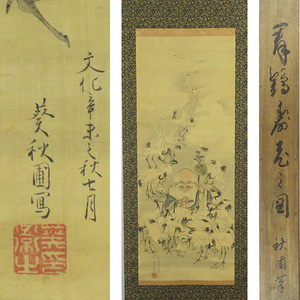 文化辛未之秋七月
葵秋圃寫
群鶴壽老之図
秋圃筆